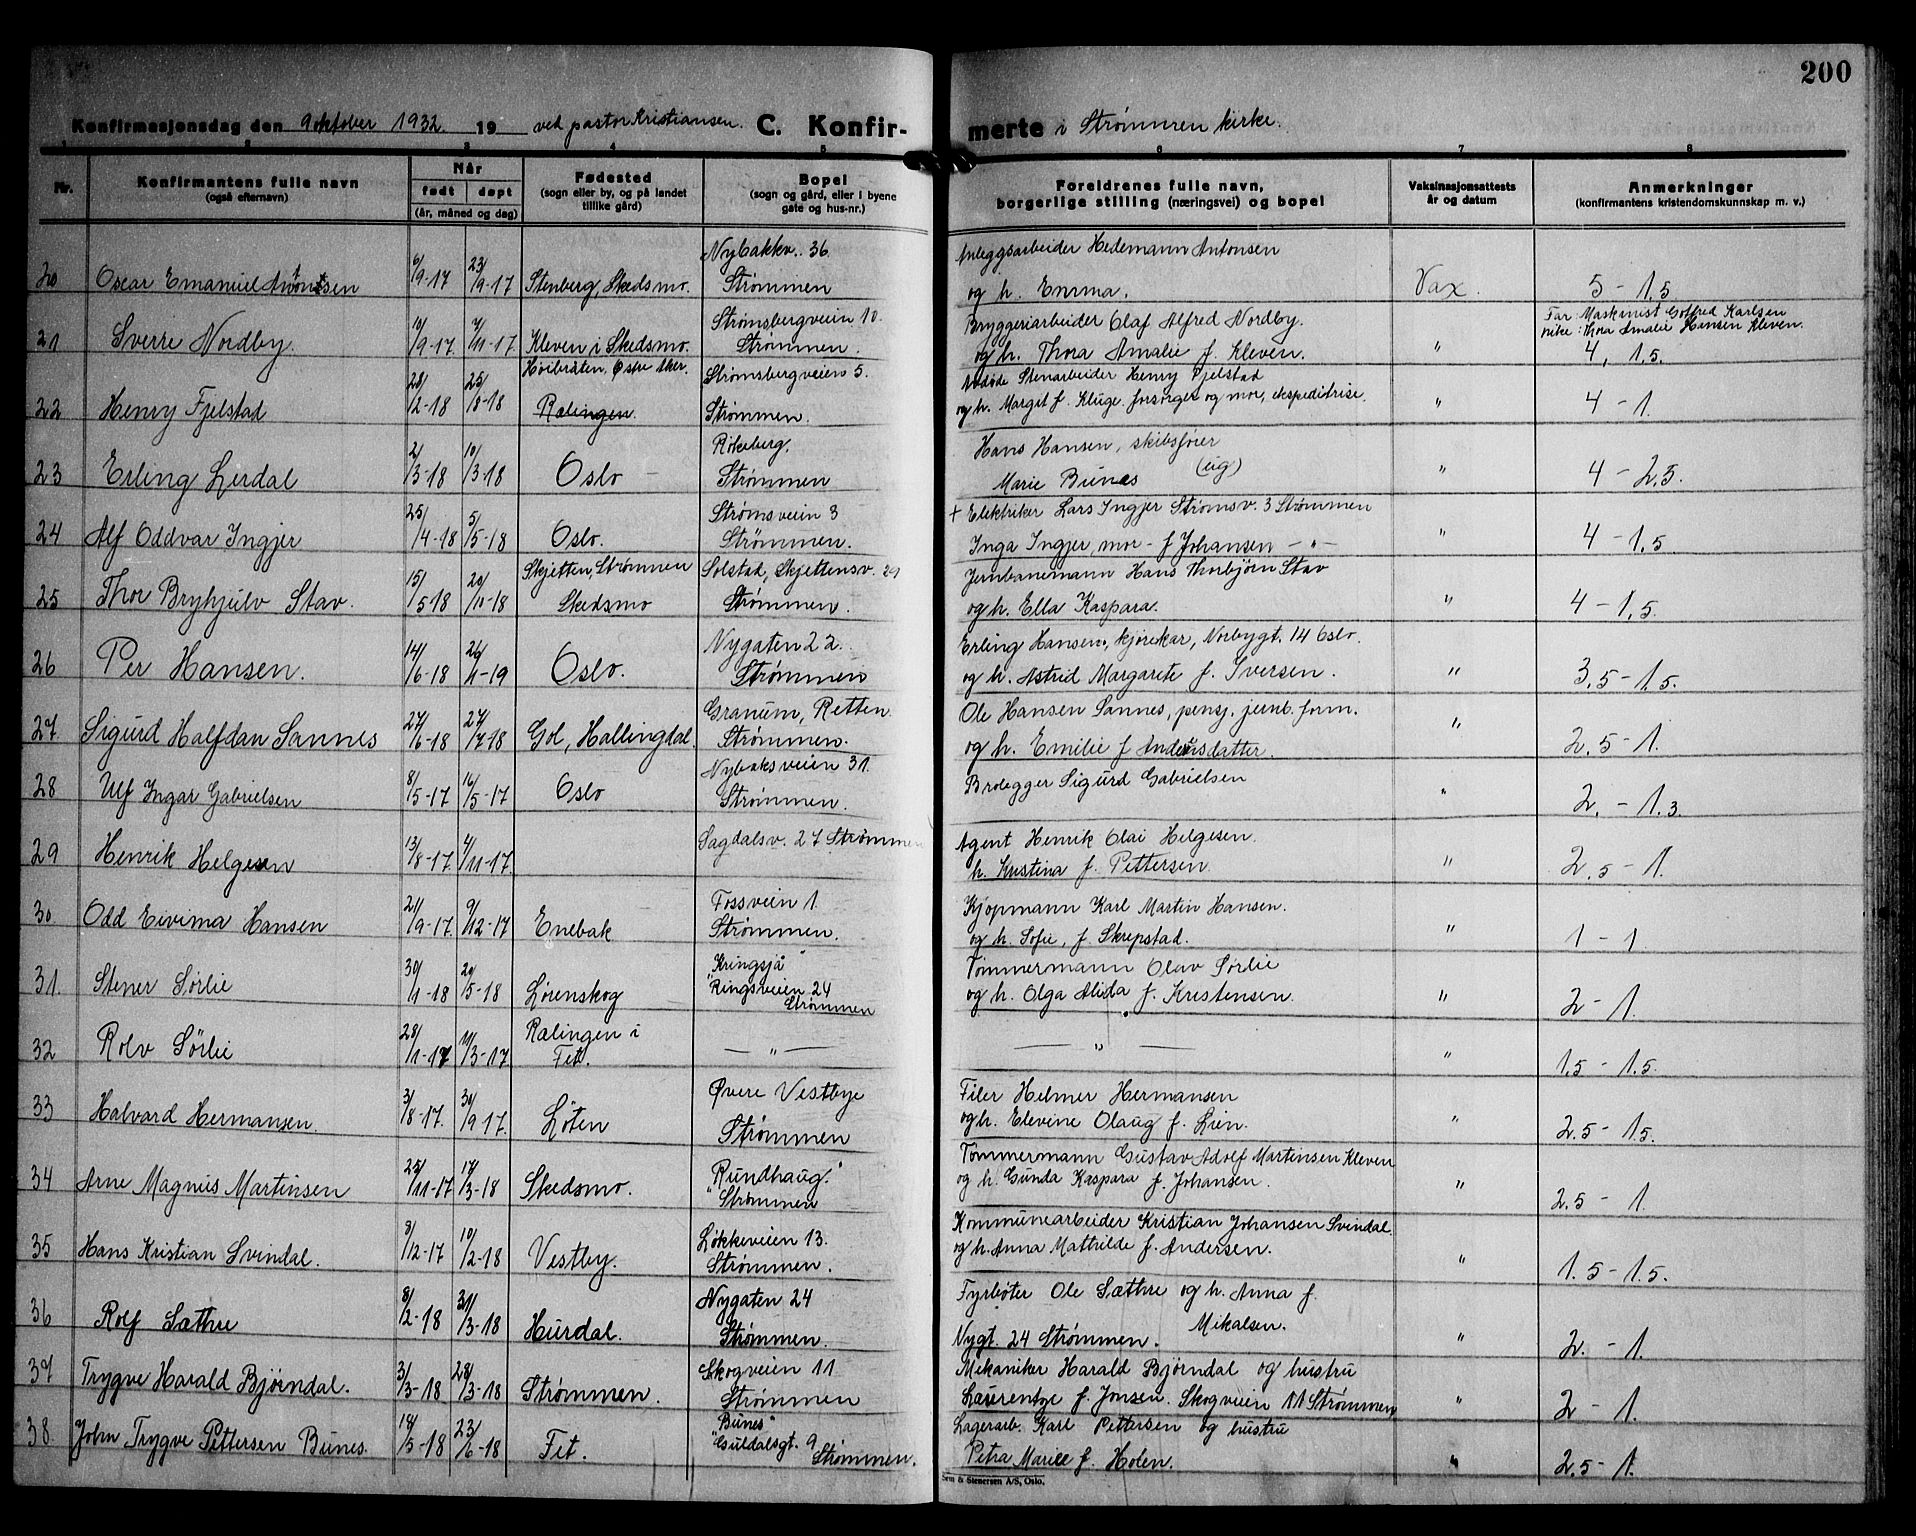 200
Konfirmasjonsdag den 9 oktober 1932 19 ved pastor Kristiansen. C. Konfirmerte i Strømmen kirke.
1 2 3 4 5 6 7 8
Nr. Konfirmantens fulle navn (også efternavn) Når født døpt (år, måned og dag) Fødested (sogn eller by, og på landet tillike gård) Bopel (sogn og gård, eller i byene gate og hus-nr.) Foreldrenes fulle navn, borgerlige stilling (næringsvei) og bopel Vaksinasjonsattests år og datum Anmerkninger (konfirmantens kristendomskunnskap m. v.)
Nybakkv. 36 Anleggsarbeider Hedemann Antonsen
20 Oscar Emanuel 6/9-17 23/9-17 Stenberg, Skedsmo. Strømmen og h. Emma. Vax. 5 - 1.5
Strømsbergveien 10. Bryggeriarbeider Olaf Alfred Nordby. Far: Maskinist Gotfred Karlsen
Thora Amalie Hansen Kleven.
21 Sverre Nordby. 10/9-17. 4/11-17. Kleven i Skedsmo. Strømmen. og h. Thora Amalie f. Kleven. " 4, 1.5.
Høibråten, Østre Aker. Strømsbergveien 5. Stenarbeider Henry Fjelstad
22 Henry Fjelstad 28/2-18 25/8-18 Rælingen. Strømmen. og h. Margit f. Kluge. forsørger og mor, ekspeditrise. " 4 - 1.
Rökeberg. Hans Hansen, skibsfører
23 Erling Lerdal 2/3-18 10/3-18 Oslo Strømmen Marie Bunes (ug) " 4 - 2.5.
Strømsveien 3 + Elektriker Lars Ingjer Strømsv. 3 Strømmen
24 Alf Oddvar Ingjer 25/4-18 5/5-18 Oslo. Strømmen. Inga Ingjer, mor - f Johansen - " - " 4 - 1.5
Skjetten, Strømmen Solstad, Skjettensv. 29 Jernbanemann Hans Thorbjørn Stav
25 Thor Brynjulv Stav. 15/5-18 20/10-18 Skedsmo Strømmen. og h. Ella Kaspara. " 4 - 1.5.
Nygaten 22. Erling Hansen, kjørekar, Norbygt. 14 Oslo.
26 Per Hansen. 14/6-18 Oslo. Strømmen og h. Astrid Margarete f. Iversen. " 3.5 - 1.5.
Granum, Retten. Ole Hansen Sannes, pensj. jernb. form.
27. Sigurd Halfdan Sannes 27/6-18 27/7-18 Gol, Hallingdal. Strømmen. og h. Emilie f Andersdatter. " 2.5 - 1.
Nybaksveien 31. Brolegger Sigurd Gabrielsen
28 Ulf Ingar Gabrielsen 8/5-17 16/5-17 Oslo Strømmen. " 2. - 1.3
Sagdalsv. 27 Strømmen Agent Henrik Olai Helgesen.
29 Henrik Helgesen 13/8-17. 4/11-17. h. Kristina f. Pettersen. " 2.5 - 1.
Fossveien 1 Kjøpmann Karl Martin Hansen.
30. Odd Eivima Hansen 21/9-17. 9/12-17 Enebak Strømmen. og h. Sofie, f. Skrepstad. " 1 - 1.
"Kringsjå" Tømmermann Olav Sørlie
31. Stener Sørlie 30/1-18 20/5-18 Lørenskog Ringsveien 24 Strømmen og h. Olga Alida f. Kristensen. " 2 - 1.
32 Rolv Sørlie 28/1-17 11/3-17. Rælingen i Fet. - " - - " - " 1.5 - 1.5.
Øvere Vestbye Filer Helmer Hermansen
33 Halvard Hermansen. 3/8-17. 30/9-17. Løten Strømmen og h. Elevine Olaug f. Lien. " 2.5 - 1.5.
Rundhaug. Tømmermann Gustav Adolf Martinsen Kleven
34 Arne Magnus Martinsen 25/11-17 17/3-18 Skedsmo. Strømmen og h. Gunda Kaspara f. Johansen. " 2.5 - 1.
Løkkeveien 13. Kommunearbeider Kristian Johansen Svindal.
35 Hans Kristian Svindal. 8/12-17 10/2-18 Vestby. Strømmen. og h. Anna Mathilde f. Andersen. " 1.5 - 1.5.
Nygaten 24 Fyrbøter Ole Sæthre og h. Anna f. Mikalsen.
36 Rolf Sæthre 8/2-18 31/3-18 Hurdal. Strømmen. Nygt. 24 Strømmen. " 2. - 1.
Skogveien 11 Mekaniker Harald Bjørndal og hustru
37 Trygve Harald Bjørndal. 3/3-18 28/3-18 Strømmen. Strømmen Laurentze f. Jonsen. Skogveien 11 Strømmen " 2 - 1.
"Bunes" Lagerarb. Karl Pettersen og hustru
38. John Trygve Pettersen Bunes. 18/5-18 23/6-18 Fet. Guldalsgt. 9 Strømmen. Petra Marie f. Holen. " 2.5 - 1.
Sem & Stenersen A/S, Oslo.